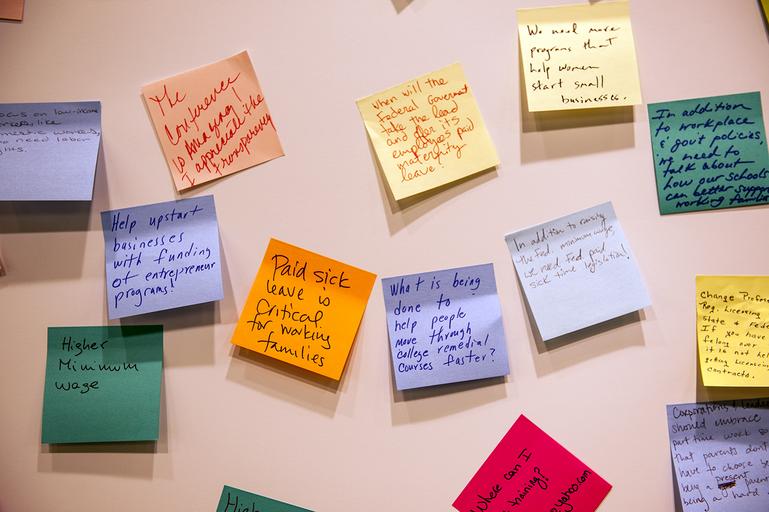 We need more
programs that
help women
start small
businesses.
The
Conference
is Amazing!
I appreciate the
transparency
When will the
Federal Government
take the lead
and offer its
employees paid
maternity
leave?
In addition
to workplace
& gov't policies,
we need to
talk about
how our schools
can better support
working families
on low-income
like
workers,
need labor
Help upstart
businesses
with funding
of entrepreneur
programs!
In addition to raising
the fed. minimum wage,
we need fed. paid
sick time legislation!
Paid sick
leave is
critical
for working
families
What is being
done to
help people
move through
college remedial
courses faster?
Change
Reg. Licensing
State & Fede
If you have
felony over
it is not
getting Licensing
contracts.
Higher
Minimum
wage
Corporations &
should embrace
part time work
that parents don't
have to choose
being a present
being a hard
Where can I
training?
yahoo.com